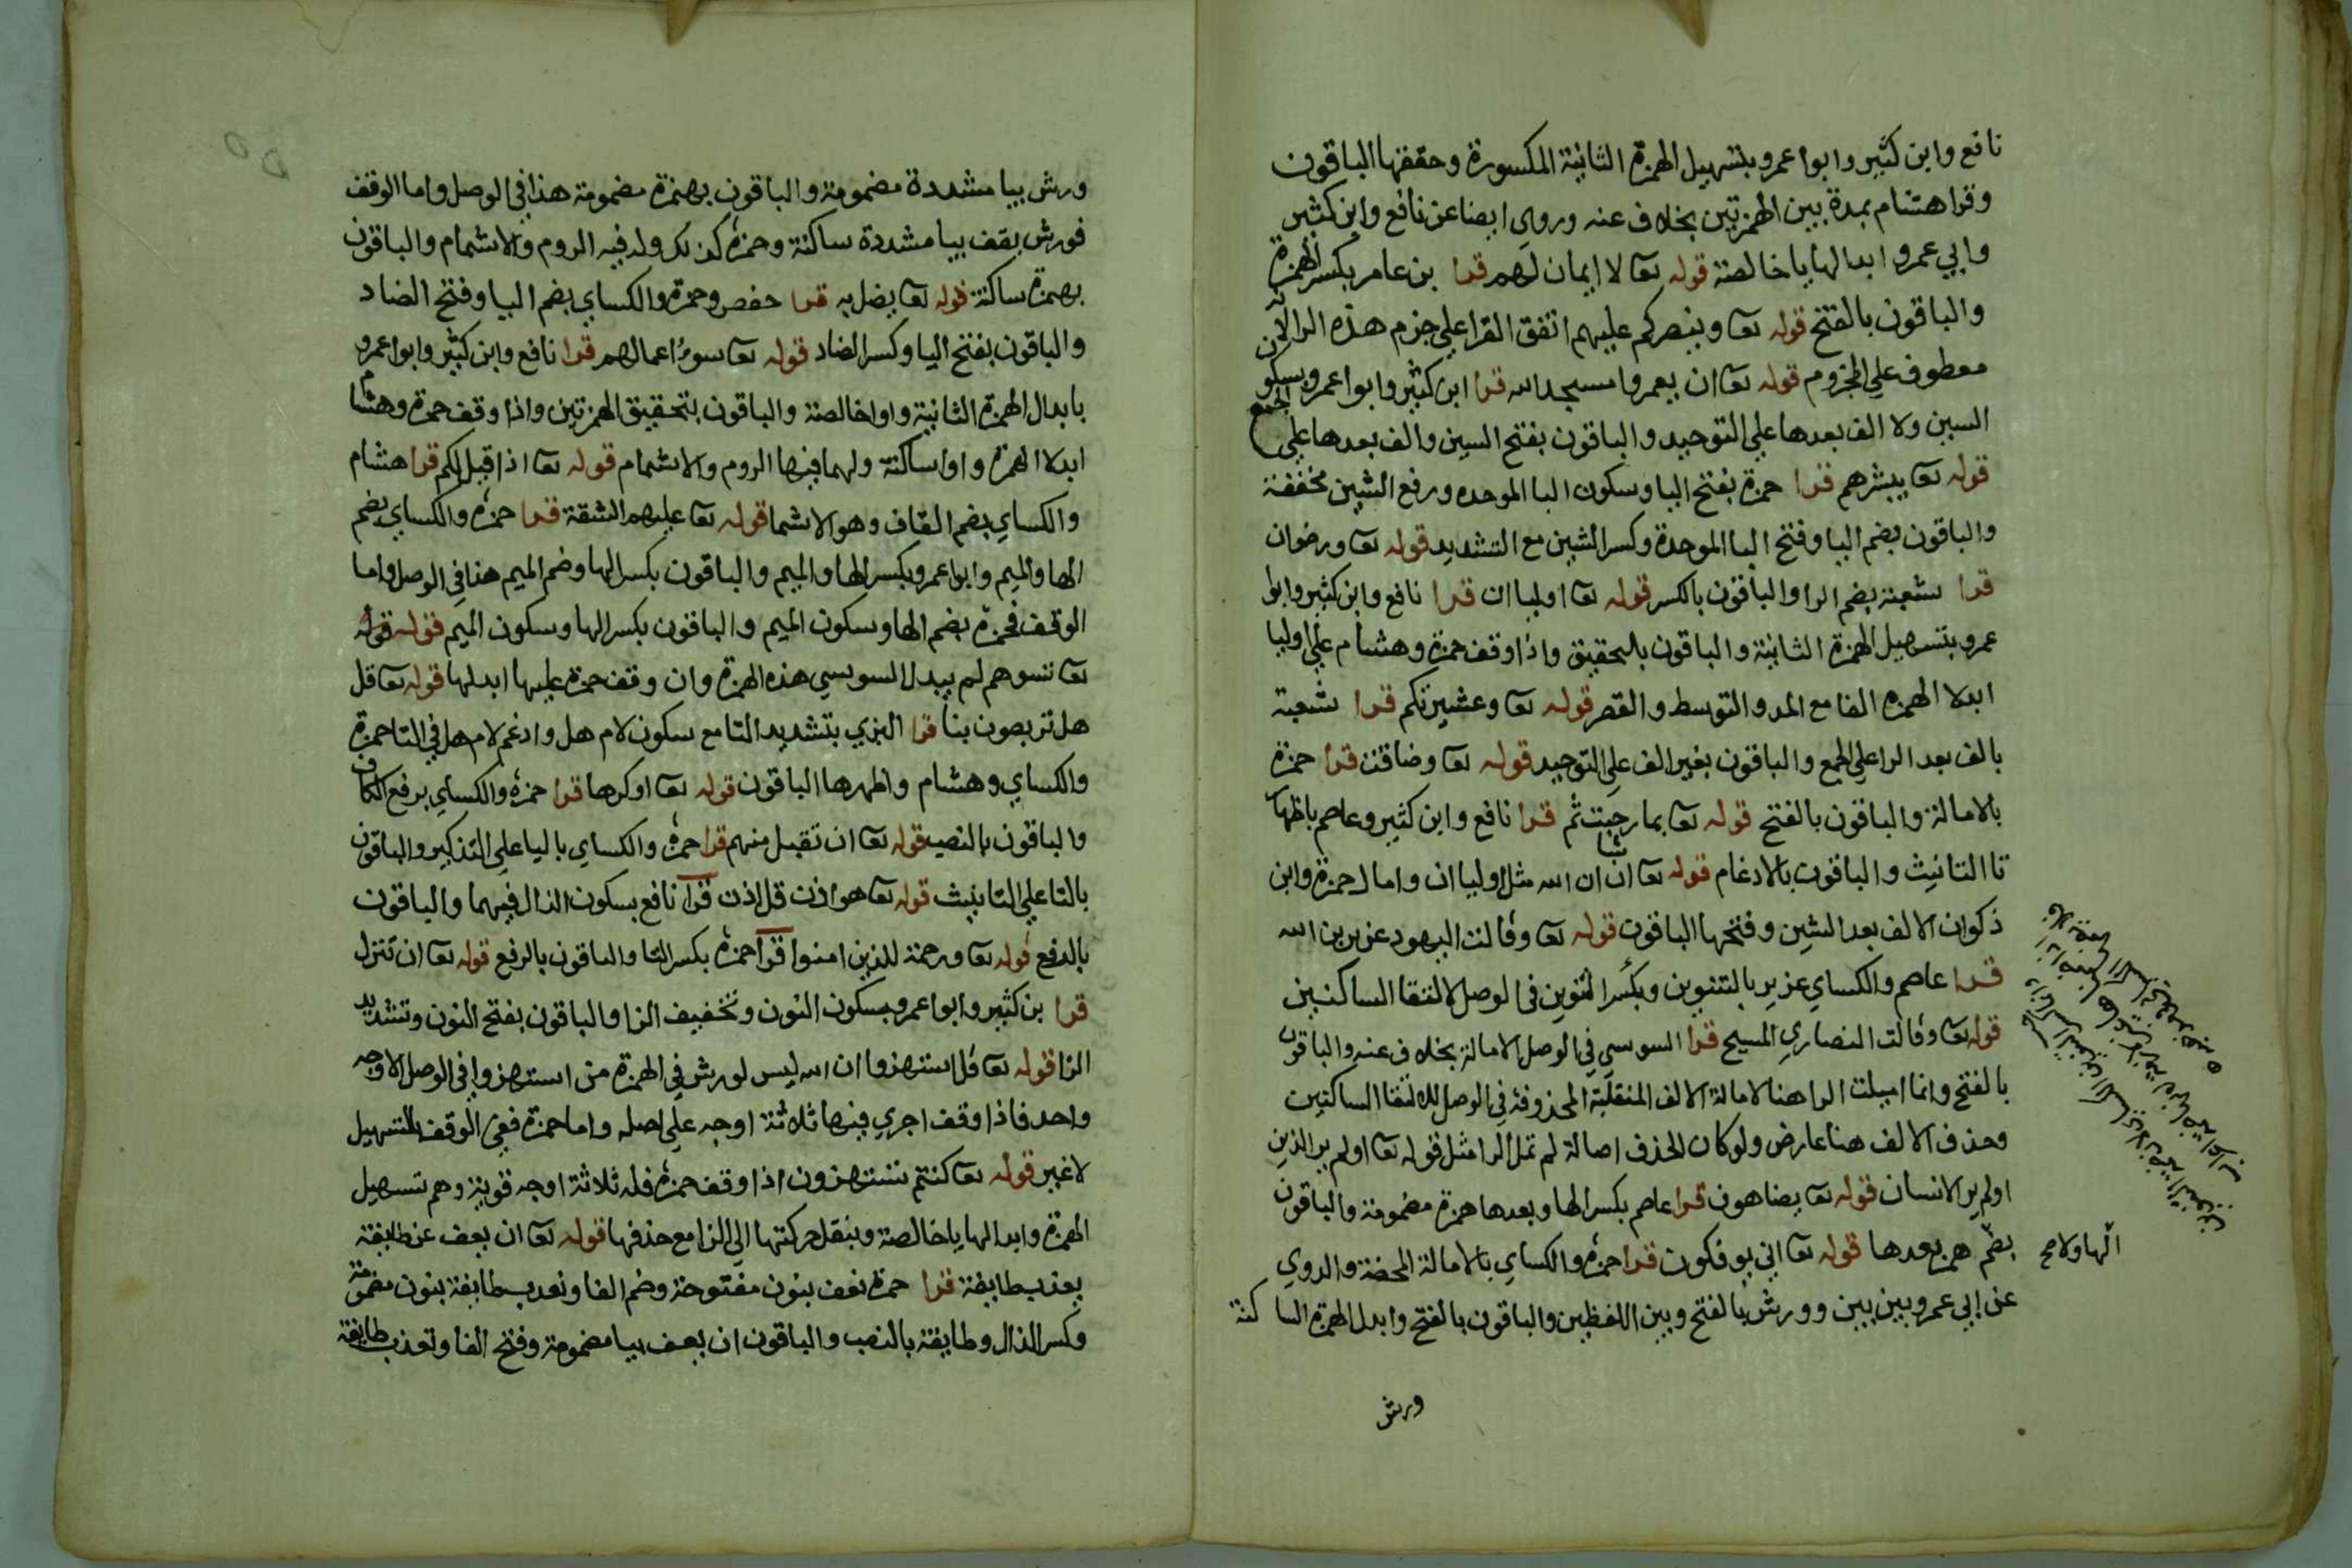 نافع وابن كثير وابوا عمرو بتسهيل الهمزة الثانية المكسورة وحققها الباقون
وقرا هشام بمدة بين الهمزتين بخلاف عنه وروي ايضا عن نافع وابن كثير
وابي عمرو ابدالها يا خالصة قوله تعا لا ايمان لهم قرا بن عامر بكسر الهمزة
والباقون بالفتح قوله تعا وينصركم عليهم اتفق القرا علي جزم هذه الرا لانه
معطوف علي المجزوم قوله تعا ان يعمروا مسجد الله قرا ابن كثير وابوا عمرو بسكون
السين ولا الف بعدها علي التوحيد والباقون بفتح السين والف بعدها علي الجمع
قوله تعا يبشرهم قرا حمزة بفتح اليا وسكون البا الموحده ورفع الشين مخففة
والباقون بضم اليا وفتح البا الموحدة وكسر الشين مع التشديد قوله تعا ورضوان
قرا شعبة بضم الرا والباقون بالكسر قوله تعا اوليا ان قرا نافع وابن كثير وابوا
عمرو بتسهيل الهمزة الثانية والباقون بالتحقيق واذا وقف حمزة وهشام علي اوليا
ابدلا الهمزه الفا مع المد والتوسط والقصر قوله تعا وعشيرتكم قرا شعبة
بالف بعد الرا علي الجمع والباقون بغير الف علي التوحيد قوله تعا وضاقت قرا حمزة
بالامالة والباقون بالفتح قوله تعا بما رحبت ثم قرا نافع وابن كثير وعاصم باظهار
تا التانيث والباقون بالادغام قوله تعا ان شا ان الله مثل اوليا ان وامال حمزة وابن
ذكوان الالف بعد الشين وفتحها الباقون قوله تعا وقالت اليهود عزير بن الله
قرا عاصم والكساي عزير بالتنوين وبكسر التنوين في الوصل لالتقا الساكنين
قوله تعا وقالت النصاري المسيح قرا السوسي في الوصل الامالة بخلاف عنه والباقون
بالفتح وانما اميلت الرا هنا لامالة الالف المنقلبة المحذوفة في الوصل لالتقا الساكنين
وحذف الالف هنا عارض ولو كان الحذف اصالة لم تمل الرا مثل قوله تعا اولم ير الذين
اولم ير الانسان قوله تعا يضاهون قرا عاصم بكسر الها وبعدها همزة مضمومة والباقون
بضم الها ولا همز بعدها قوله تعا اني يوفكون قرا حمزه والكساي بالامالة المحضة والدوري
عن ابي عمرو بين بين وورش بالفتح وبين اللفظين والباقون بالفتح وابدل الهمزة الساكنة
ورش
ورش بيا مشددة مضمومة والباقون بهمزة مضمومة هذا في الوصل واما الوقف
فورش يقف بيا مشددة ساكنة وحمزه كذلك وله فيه الروم والاشمام والباقون
بهمزة ساكنة قوله تعا يضل به قرا حفص وحمزة والكساي بضم اليا وفتح الضاد
والباقون بفتح اليا وكسر الضاد قوله تعا سوء اعمالهم قرا نافع وابن كثير وابوا عمرو
بابدال الهمزة الثانية واوا خالصة والباقون بتحقيق الهمزتين واذا وقف حمزة وهشام
ابدلا الهمزة واوا ساكنة ولهما فيها الروم والاشمام قوله تعا اذا قيل لكم قرا هشام
والكساي بضم القاف وهو الاشما قوله تعا عليهم الشقة قرا حمزه والكساي بضم
الها والميم وابوا عمرو بكسر الها والميم والباقون بكسر الها وضم الميم هذا في الوصل واما
الوقف فحمزه بضم الها وسكون الميم والباقون بكسر الها وسكون الميم قوله قوله
تعا تسوهم لم يبدل السوسي هذه الهمزة وان وقف حمزة عليها ابدلها قوله تعا قل
هل تربصون بنا قرا البزي بتشديد التا مع سكون لام هل وادغم لام هل في التا حمزة
والكساي وهشام واظهرها الباقون قوله تعا او كرها قرا حمزه والكساي برفع الكاف
والباقون بالنصب قوله تعا ان تقبل منهم قرا حمزه والكساي باليا علي التذكير والباقون
بالتا علي التانيث قوله تعا هو اذن قل اذن قرا نافع بسكون الذال فيهما والباقون
بالرفع قوله تعا ورحمة للذين امنوا قرا حمزه بكسر التا والباقون بالرفع قوله تعا ان تنزل
قرا بن كثير وابوا عمرو بسكون النون وتخفيف الزا والباقون بفتح النون وتشديد
الزا قوله تعا قل استهزوا ان الله ليس لورش في الهمزة من استهزوا في الوصل الا وجه
واحد فاذا وقف اجري فيها ثلاثة اوجه علي اصله واما حمزة ففي الوقف بالتسهيل
لا غير قوله تعا كنتم تستهزون اذا وقف حمزه فله ثلاثة اوجه قوية وهم تسهيل
الهمزة وابدالها يا خالصة وبنقل حركتها الي الزا مع حذفها قوله تعا ان يعف عن طايفة
يعذب طايفة قرا حمزة نعف بنون مفتوحة وضم الفا ونعذب طايفة بنون مضمومة
وكسر الذال وطايفة بالنصب والباقون ان يعف بيا مضمومة وفتح الفا وتعذب طايفة